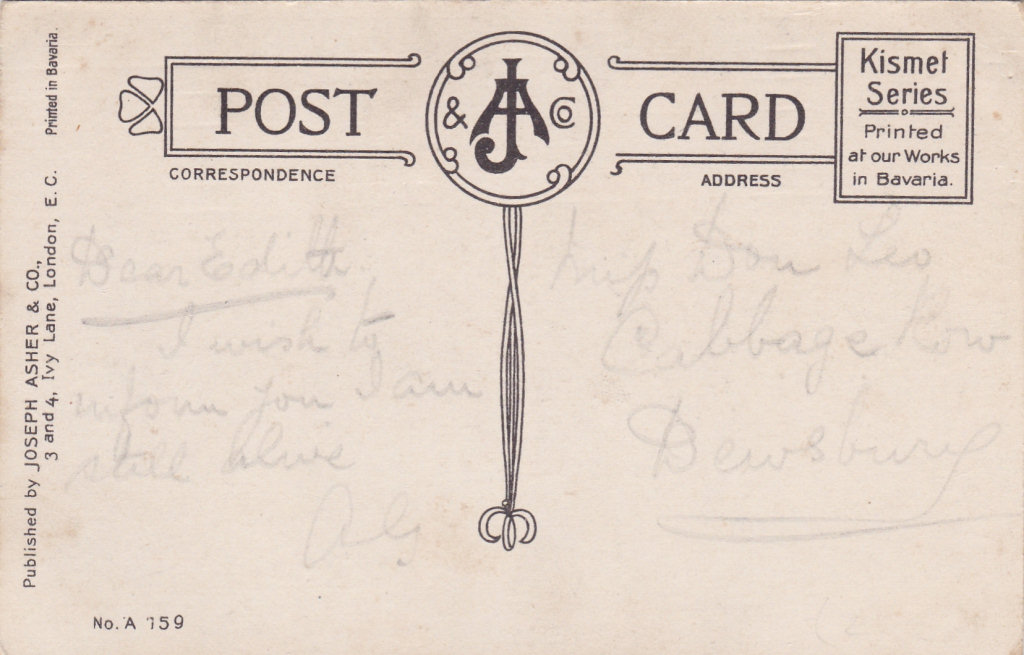 POST CARD
& JA Co
CORRESPONDENCE
ADDRESS
Kismet
Series
Printed
at our Works
in Bavaria.
Published by JOSEPH ASHER & CO.,
3 and 4, Ivy Lane, London, E. C.
Printed in Bavaria.
Dear Edith
I wish to
inform you I am
still alive
AG
Miss Leo
Cabbage Row
Dewsbury
No. A 159